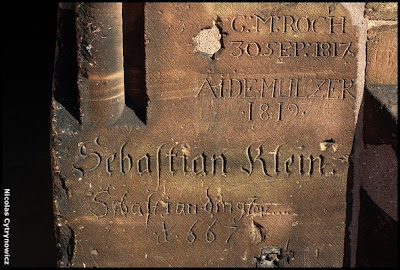 G.M.ROCH
30 SEP. 1817
AIDEMULZER
1812.
Sebastian Klein.
Sebastian
Nicolas Cytrynowicz